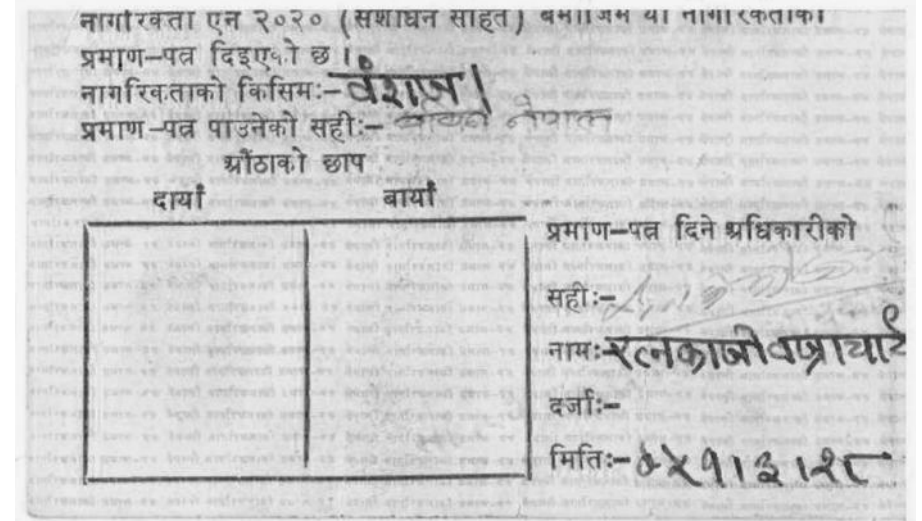 नागरिकता एन २०२० (संशोधन सहित) बमोजिम यो नागरिकताको
प्रमाण–पत्र दिइएको छ ।
नागरिकताको किसिमः– वंशज ।
प्रमाण–पत्र पाउनेको सहीः– नेपाल
औंठाको छाप
दायाँ बायाँ
प्रमाण–पत्र दिने अधिकारीको
सहीः–
नामः– रत्नकाजी वज्राचार्य
दर्जाः–
मितिः–